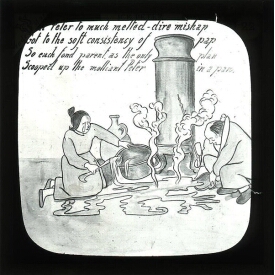 Peter to much melted - dire mishap
to the soft consistency of pap
So each fond parent, as the only plan
Scooped up the molliant Peter in a pan.